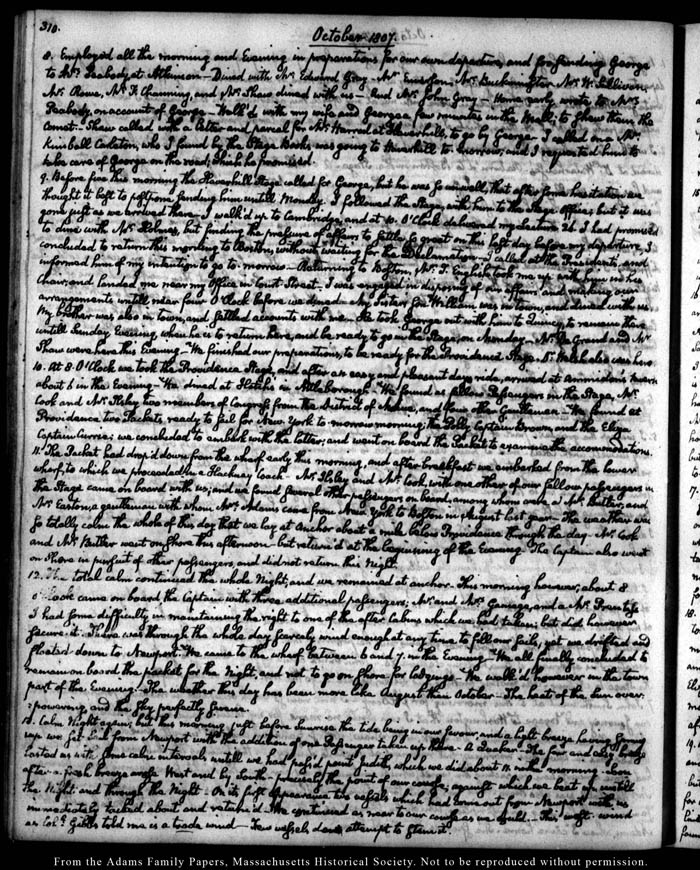 310.
October 1807.
8. Employed all the morning and Evening in preparations for our own departure, and for sending George
to Mr. Peabody at Atkinson — Dined with Mr. Edward Gray. Mr. Emerson, Mr. Buckminster, Mr. W. Sullivan,
Mr. Rowe, Mr. F. Channing, and Mr. Shaw dined with us — And Mr. John Gray — Home early wrote to Mrs.
Peabody, on account of George — Walk'd with my wife and George a few minutes in the Mall; to shew them the
Comet. — Shaw called with a letter and parcel for Mr. Harrod at Haverhill, to go by George. I called on a Mr.
Kimball Carleton, who I found by the Stage Books was going to Haverhill to-morrow, and I requested him to
take care of George on the road; which he promised.
9. Before five this morning the Haverhill Stage called for George, but he was so unwell, that after some hesitation we
thought it best to postpone sending him untill Monday. I followed the Stage with him to the Stage Office; but it was
gone just as we arrived there. I walk'd up to Cambridge, and at 10. O'Clock delivered my Lecture 21. I had promised
to dine with Mr. Holmes, but finding the pressure of affairs to settle so great on this last day before my departure, I
concluded to return this morning to Boston, without waiting for the Declamation — I called at the President's, and
informed him of my intention to go to-morrow — Returning to Boston, Mr. T. English took me up with him in his
Chair, and landed me near my Office in Court Street. I was engaged in disposing of our affairs and making our
arrangements untill near four O'Clock before we dined — My Sister's Son William was in town, and dined with us.
My brother was also in town, and settled accounts with me. He took George out with him to Quincy, to remain there
untill Sunday Evening, when he is to return here, and be ready to go in the Stage, on Monday — Mr. De Grand and Mr.
Shaw were here this Evening — We finished our preparations, to be ready for the Providence Stage. Dr. Welsh also was here.
10. At 8. O'Clock we took the Providence Stage, and after an easy and pleasant day's ride, arrived at Ammidon's
about 6 in the Evening — We dined at Hatch's in Attleborough — We found as fellow Passengers in the Stage, Mr.
Cook and Mr. Ilsley two members of Congress from the District of Maine, and four other Gentlemen — We found at
Providence two Packets ready to sail for New-York to morrow morning; the Polly Captain Brown, and the Eliza
Captain Currie; we concluded to embark with the latter; and went on board the Packet to examine the accommodations.
11. The Packet had drop'd down from the wharf early this morning, and after breakfast we embarked from the lower
wharf, to which we proceeded in a Hackney Coach — Mr. Ilsley and Mr. Cook, with one other, of our fellow passengers in
the Stage came on board with us; and we found several other passengers on board, among whom were a Mr. Butler, and
Mr. Easton a gentleman with whom Mrs. Adams came from New York to Boston in August last year. The weather was
so totally calm the whole of this day that we lay at anchor about a mile below Providence through the day. Mr. Cook
and Mr. Butler went on shore this afternoon — but return'd at the beginning of the Evening. The Captain also went
on shore in pursuit of other passengers, and did not return this Night.
12. The total calm continued the whole Night, and we remained at anchor — This morning however, about 8
O'Clock came on board the Captain with three additional passengers; Mr. and Mrs. Gamage, and a Mr. Prentiss
I had some difficulty in maintaining the right to one of the after Cabins which we had taken; but did however
secure it. There was through the whole day scarcely wind enough at any time to fill our sails, yet we drifted and
floated down to Newport. We came to the wharf between 6 and 7. in the Evening — We all finally concluded to
remain on board the packet for the Night, and not to go on shore for lodgings — We walk'd however in the town
part of the Evening. The weather this day has been more like August than October — The heat of the Sun over-
powering, and the Sky perfectly serene.
13. Calm Night again; but this morning just before Sunrise the tide being in our favour, and a light breeze having sprung
up we set sail from Newport with the addition of one Passenger taken up there — A Quaker — The fair and easy breeze
lasted us with some calm intervals untill we had pass'd point Judith, which we did about 11. in the morning — Soon
after a fresh breeze arose West and by South — precisely the point of our course, against which we beat up untill
the Night, and through the Night — On its first appearance two vessels which had come out from Newport with us
immediately tacked about and return'd — We continued as near to our course as we could. — This west wind
as Col. Gibbs told me is a trade wind — Few vessels dare attempt to stem it.
From the Adams Family Papers, Massachusetts Historical Society. Not to be reproduced without permission.